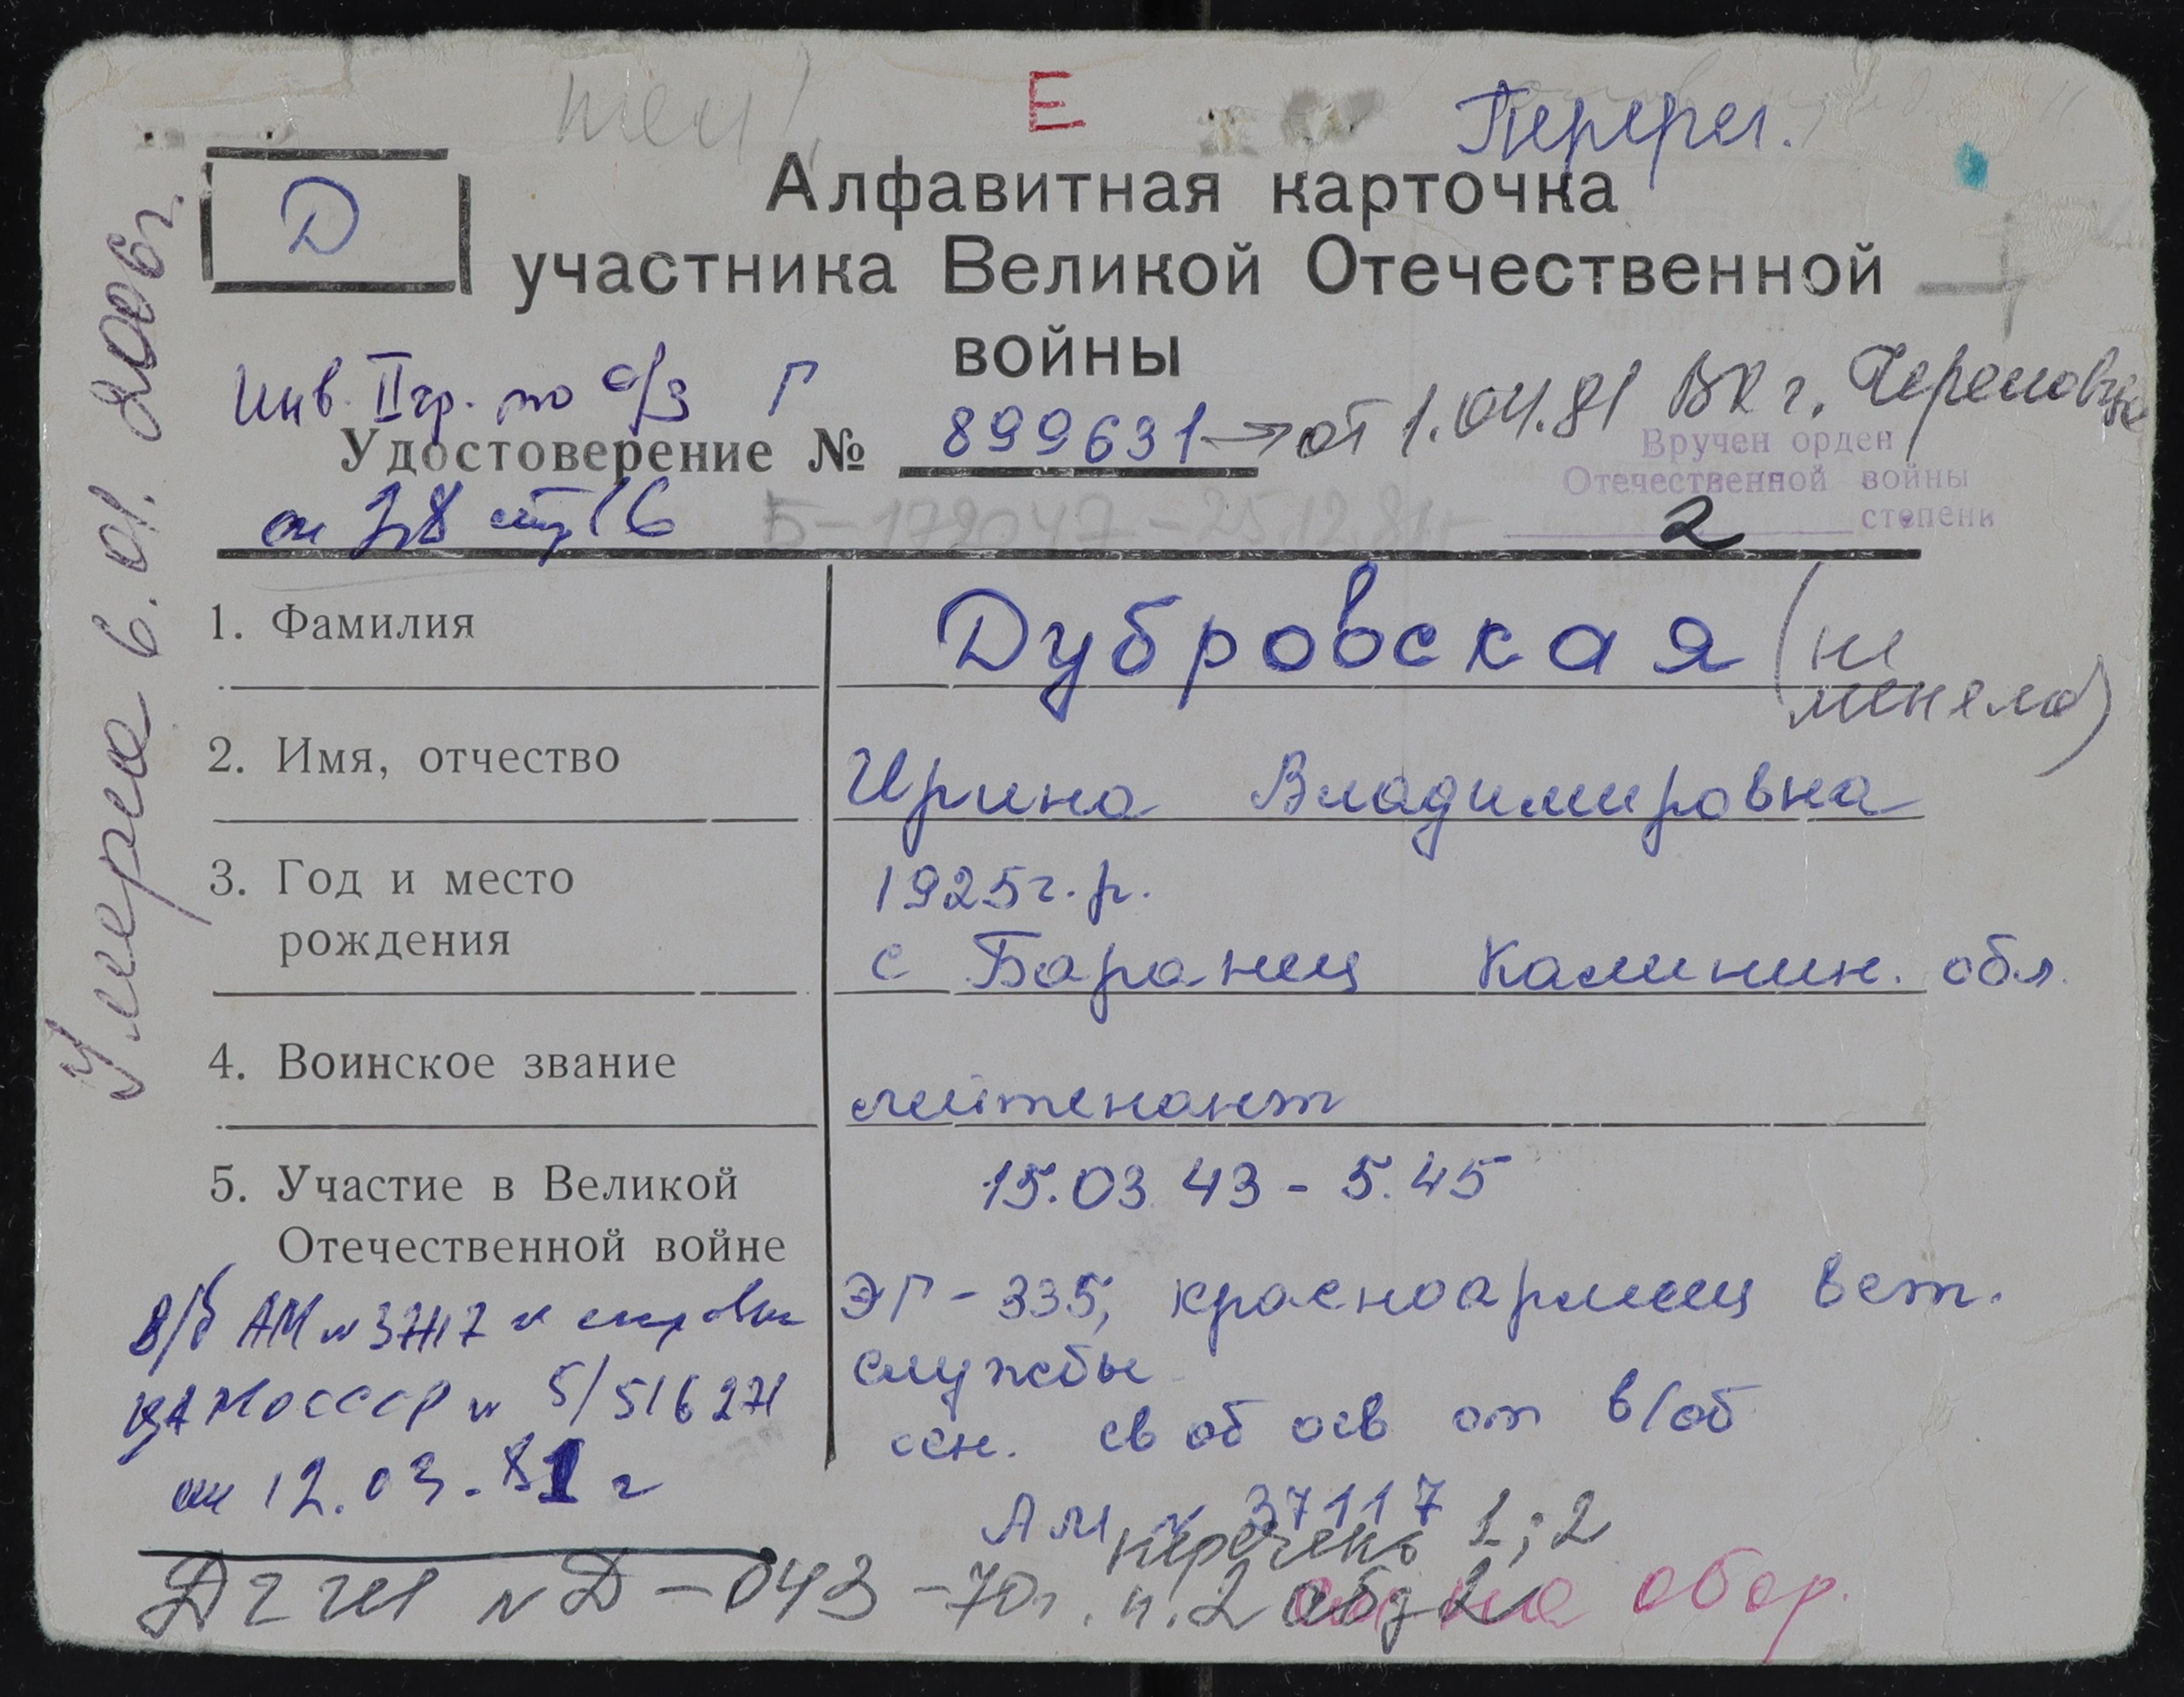 Е
Перерег.
Д
Алфавитная карточка
участника Великой Отечественной
войны
Инв. II гр. по о/з Г
Удостоверение № 899631 → от 1.04.81 ВК г. Череповца
Вручен орден
Отечественной войны
2 степени
Б-172047-25.12.81г
1. Фамилия
Дубровская (не
меняла)
2. Имя, отчество
Ирина Владимировна
3. Год и место
рождения
1925г.р.
с Баранец Калинин. обл.
4. Воинское звание
лейтенант
5. Участие в Великой
Отечественной войне
15.03.43 - 5.45
ЭГ-335, красноармеец вет.
службы
осн. св об осв от в/об
АМ № 37117
В/б АМ № 37117 и справки
ЦАМО СССР № 5/516271
от 12.03.81 г
перечень 1; 2
ДГШ № Д-043-70г. п.2 абз 2
см на обор.
Умерла 6.01.2006г.